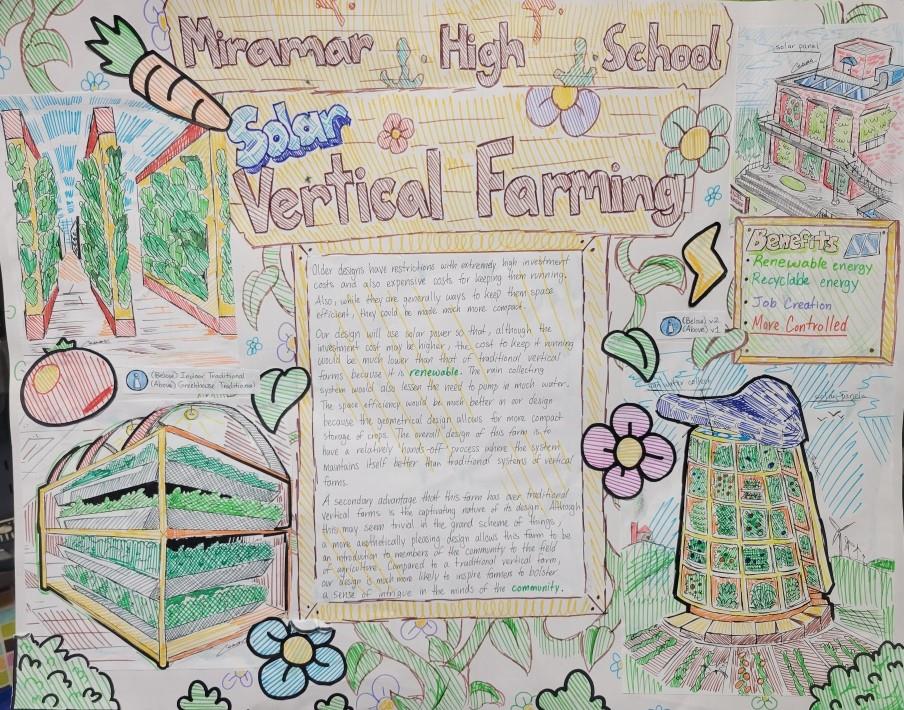 Miramar High School
Solar
Vertical Farming
solar panel
Older designs have restrictions with extremely high investment
costs and also expensive costs for keeping them running.
Also, while they are generally ways to keep them space
efficient, they could be made much more compact.
Our design will use solar power so that, although the
investment cost may be higher, the cost to keep it running
would be much lower than that of traditional vertical
farms because it is renewable. The rain collecting
system would also lessen the need to pump in much water.
The space efficiency would be much better in our design
because the geometrical design allows for more compact
storage of crops. The overall design of this farm is to
have a relatively "hands-off" process where the system
maintains itself better than traditional systems of vertical
farms.
A secondary advantage that this farm has over traditional
vertical farms is the captivating nature of its design. Although
this may seem trivial in the grand scheme of things,
a more aesthetically pleasing design allows this farm to be
an introduction to members of the community to the field
of agriculture. Compared to a traditional vertical farm,
our design is much more likely to inspire farmers to bolster
a sense of intrigue in the minds of the community.
Benefits
Renewable energy
Recyclable energy
Job Creation
More Controlled
(Below) v2
(Above) v1
(Below) Indoor Traditional
(Above) Greenhouse Traditional
rain water collect
solar panel